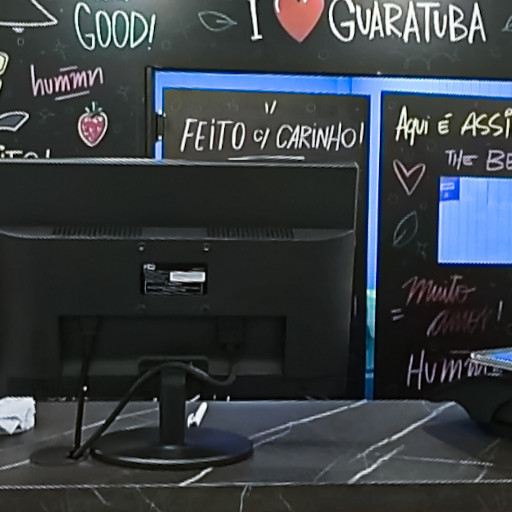 GOOD!
I ❤ GUARATUBA
hummn
FEITO c/ CARINHO!
AQUI É ASSI
THE BE
muito
amor!
HUMM